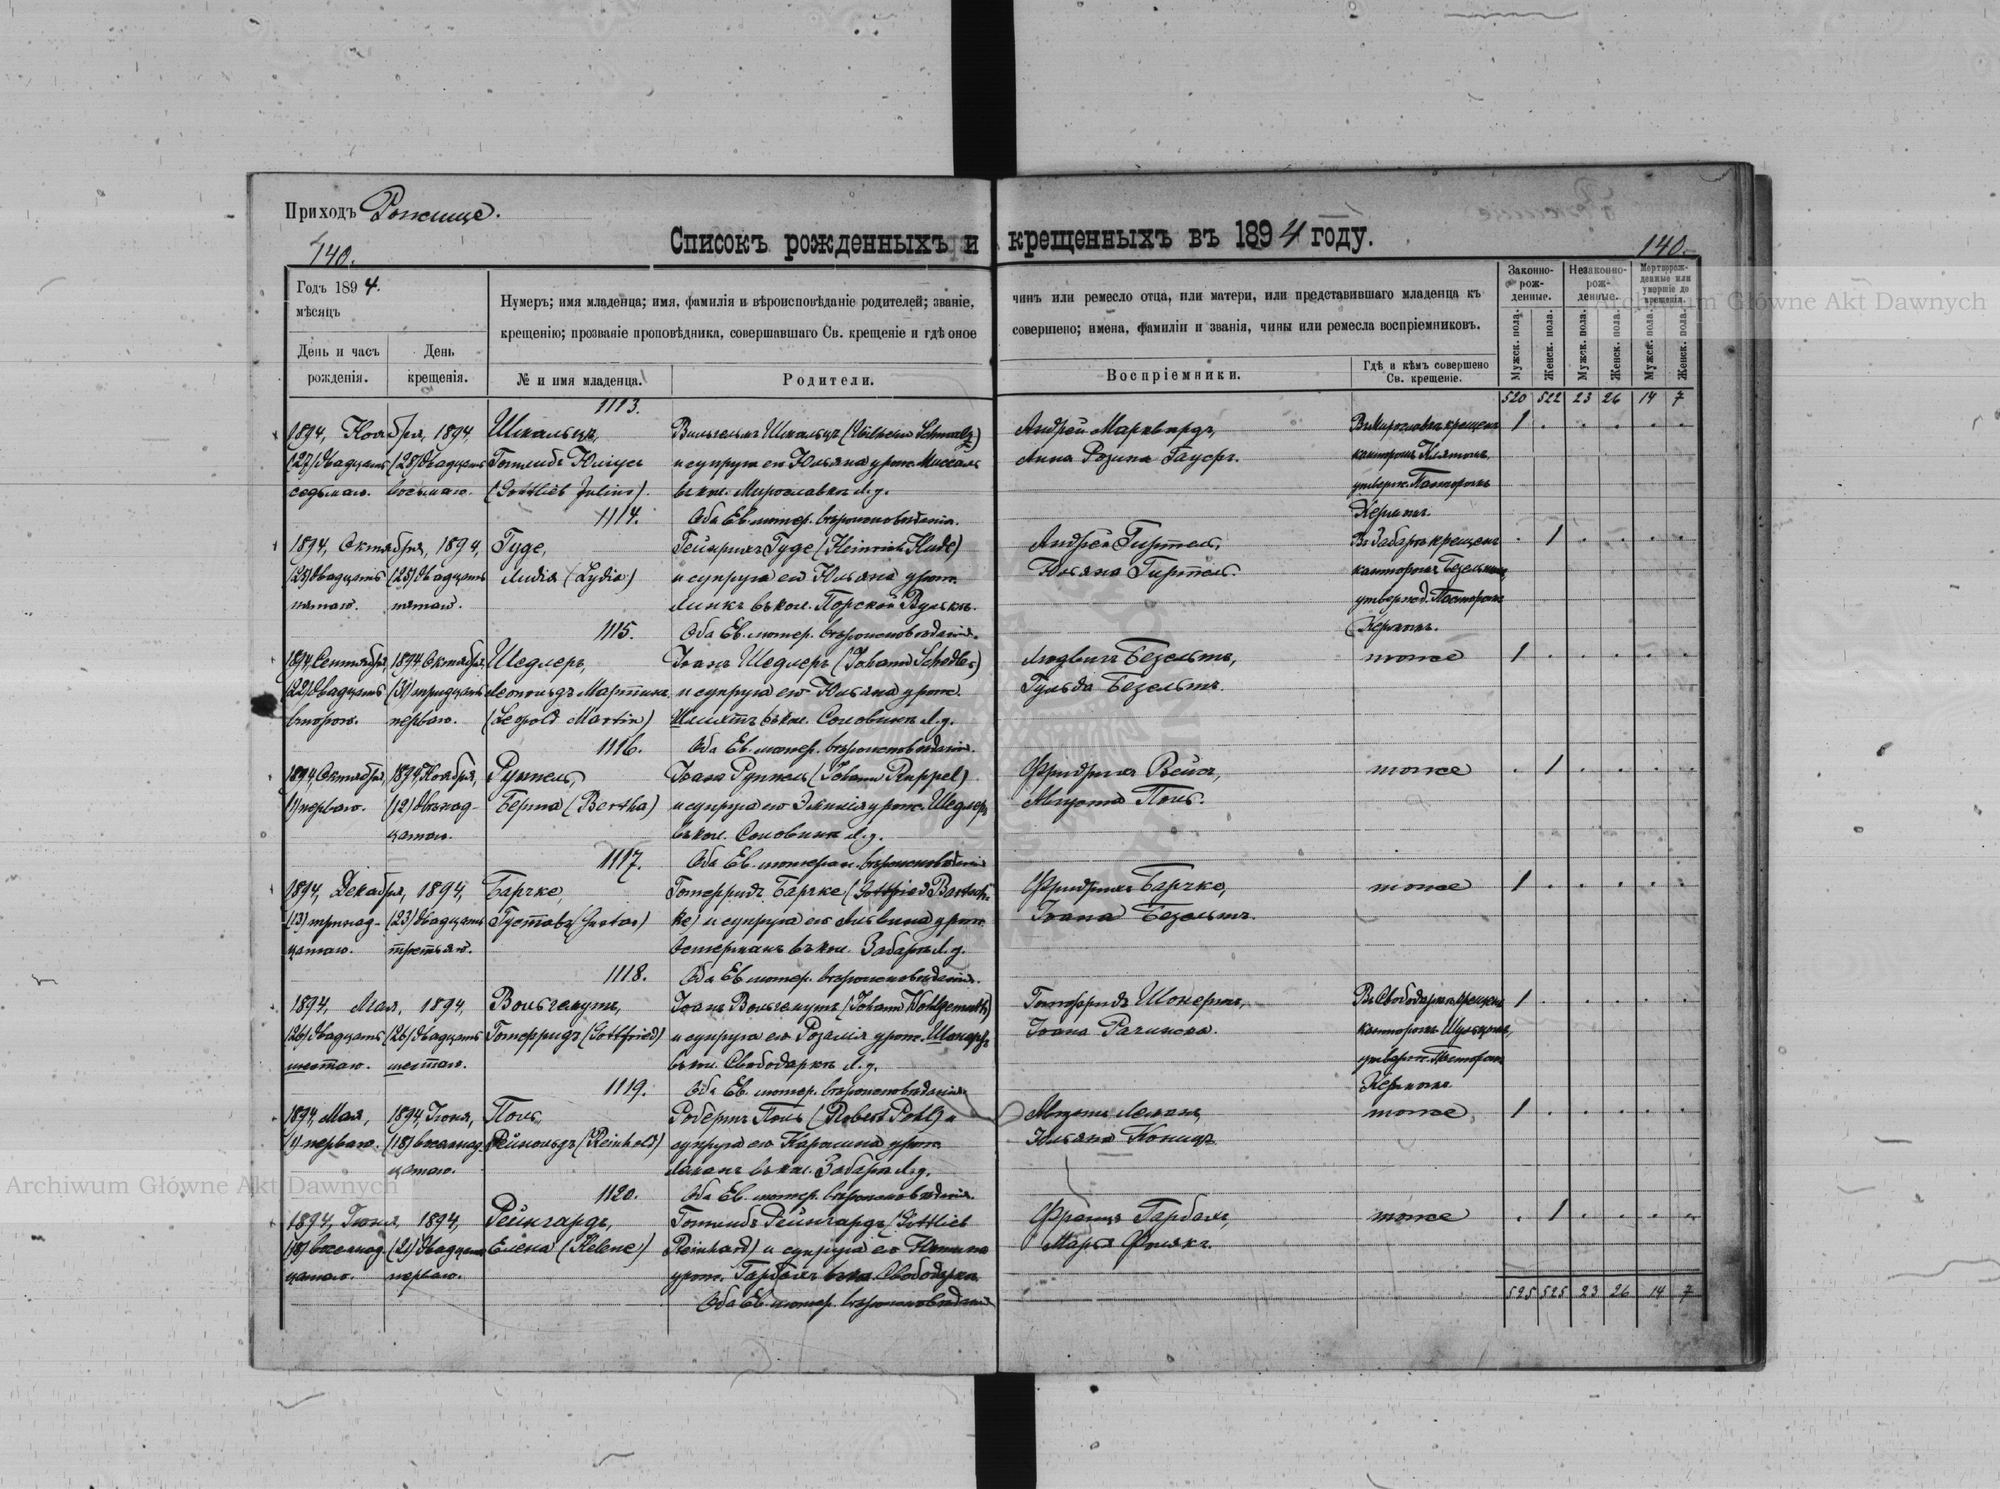 Приходъ Рожище.
140.
Списокъ рожденныхъ и крещенныхъ въ 1894 году.
140.
Годъ 1894.
мѣсяцъ
День и часъ рожденія.
День крещенія.
Нумеръ; имя младенца; имя, фамилія и вѣроисповѣданіе родителей; званіе, чинъ или ремесло отца, или матери, или представившаго младенца къ
крещенію; прозваніе проповѣдника, совершавшаго Св. крещеніе и гдѣ оное совершено; имена, фамиліи и званія, чины или ремесла воспріемниковъ.
№ и имя младенца.
Родители.
Воспріемники.
Гдѣ и кѣмъ совершено Св. крещеніе.
Законно-рож-денные.
Незаконно-рож-денные.
Мертворож-денные или умершіе до крещенія.
Мужск. пола.
Женск. пола.
Мужск. пола.
Женск. пола.
Мужск. пола.
Женск. пола.
520 522 23 26 14 7
1113.
1894, Ноября, 1894,
(27) двадцать седьмаго.
(28) двадцать восьмаго.
Шмальцъ,
Готлибъ Юліусъ
(Gottlieb Julius).
Вильгельмъ Шмальцъ (Wilhelm Schmalz)
и супруга его Юльяна урож.
въ кол. Мирославка Л.у.
Оба Ев. лютер. вѣроисповѣданія.
Андрей Марквардъ,
Анна Розина Бауеръ.
крещенъ
канторомъ
утверж. Пасторомъ
Керномъ.
1
1114.
1894, Октября, 1894,
(25) двадцать пятаго.
(25) двадцать пятаго.
Гуде,
Лидія (Lydia)
Гейнрихъ Гуде (Heinrich Hude)
и супруга его Юльяна урож.
Линкъ въ кол. Порской Вулькѣ.
Оба Ев. лютер. вѣроисповѣданія.
Андрей Гиртель,
Юльяна Гиртель.
Въ Забарѣ крещенъ
канторомъ Безельтъ
утвержд. Пасторомъ
Керномъ.
1
1115.
1894, Сентября, 1894, Октября,
(22) двадцать втораго.
(31) тридцать перваго.
Шедлеръ,
Леопольдъ Мартинъ
(Leopold Martin)
Іоанъ Шедлеръ (Johann Schedler)
и супруга его Юльяна урож.
въ кол. Соловинъ Л.у.
Оба Ев. лютер. вѣроисповѣданія.
Людвигъ Безельтъ,
Гульда Безельтъ.
тоже
1
1116.
1894, Октября, 1894, Ноября,
(1) перваго.
(12) двѣнад-цатаго.
Руппель,
Берта (Bertha)
Іоанъ Руппель (Johann Ruppel)
и супруга его Эмилія урож. Шедлеръ
въ кол. Соловинъ Л.у.
Оба Ев. лютеран. вѣроисповѣданія
Фридрихъ Вейсъ,
Августа Поль.
тоже
1
1117.
1894, Декабря, 1894,
(13) тринад-цатаго.
(23) двадцать третьяго.
Барчке,
Густавъ (Gustav)
Готфридъ Барчке (Gottfried Bartsch-
ke) и супруга его Альвина урож.
Остерманъ въ кол. Забара Л.у.
Оба Ев. лютер. вѣроисповѣданія.
Фридрихъ Барчке,
Іоана Безельтъ.
тоже
1
1118.
1894, Мая, 1894,
(26) двадцать шестаго.
(26) двадцать шестаго.
Вольгемутъ,
Готфридъ (Gottfried)
Іоанъ Вольгемутъ (Johann Wohlgemuth)
и супруга его Розалія урож.
въ кол. Свободарка Л.у.
Оба Ев. лютер. вѣроисповѣданія.
Готфридъ Шонертъ,
Іоана Рачинска.
Въ Свободаркѣ крещенъ
канторомъ Шульцомъ,
утверж. Пасторомъ
Керномъ.
1
1119.
1894, Мая, 1894, Іюня,
(1) перваго.
(18) восемнад-цатаго.
Поль,
Рейнольдъ (Reinhold)
Робертъ Поль (Robert Pohl) и
супруга его Каролина урож.
въ кол. Забара Л.у.
Оба Ев. лютер. вѣроисповѣданія.
Августъ Леманъ,
Юльяна Коницъ.
тоже
1
1120.
1894, Іюня, 1894,
(18) восемнад-цатаго.
(21) двадцать перваго.
Рейнгардъ,
Елена (Helene)
Готлибъ Рейнгардъ (Gottlieb
Reinhard) и супруга его Юстина
урож. Гарбахъ въ кол. Свободарка
Оба Ев. лютер. вѣроисповѣданія
Францъ Гарбахъ,
Марья
тоже
1
525 525 23 26 14 7
Archiwum Główne Akt Dawnych
Archiwum Główne Akt Dawnych